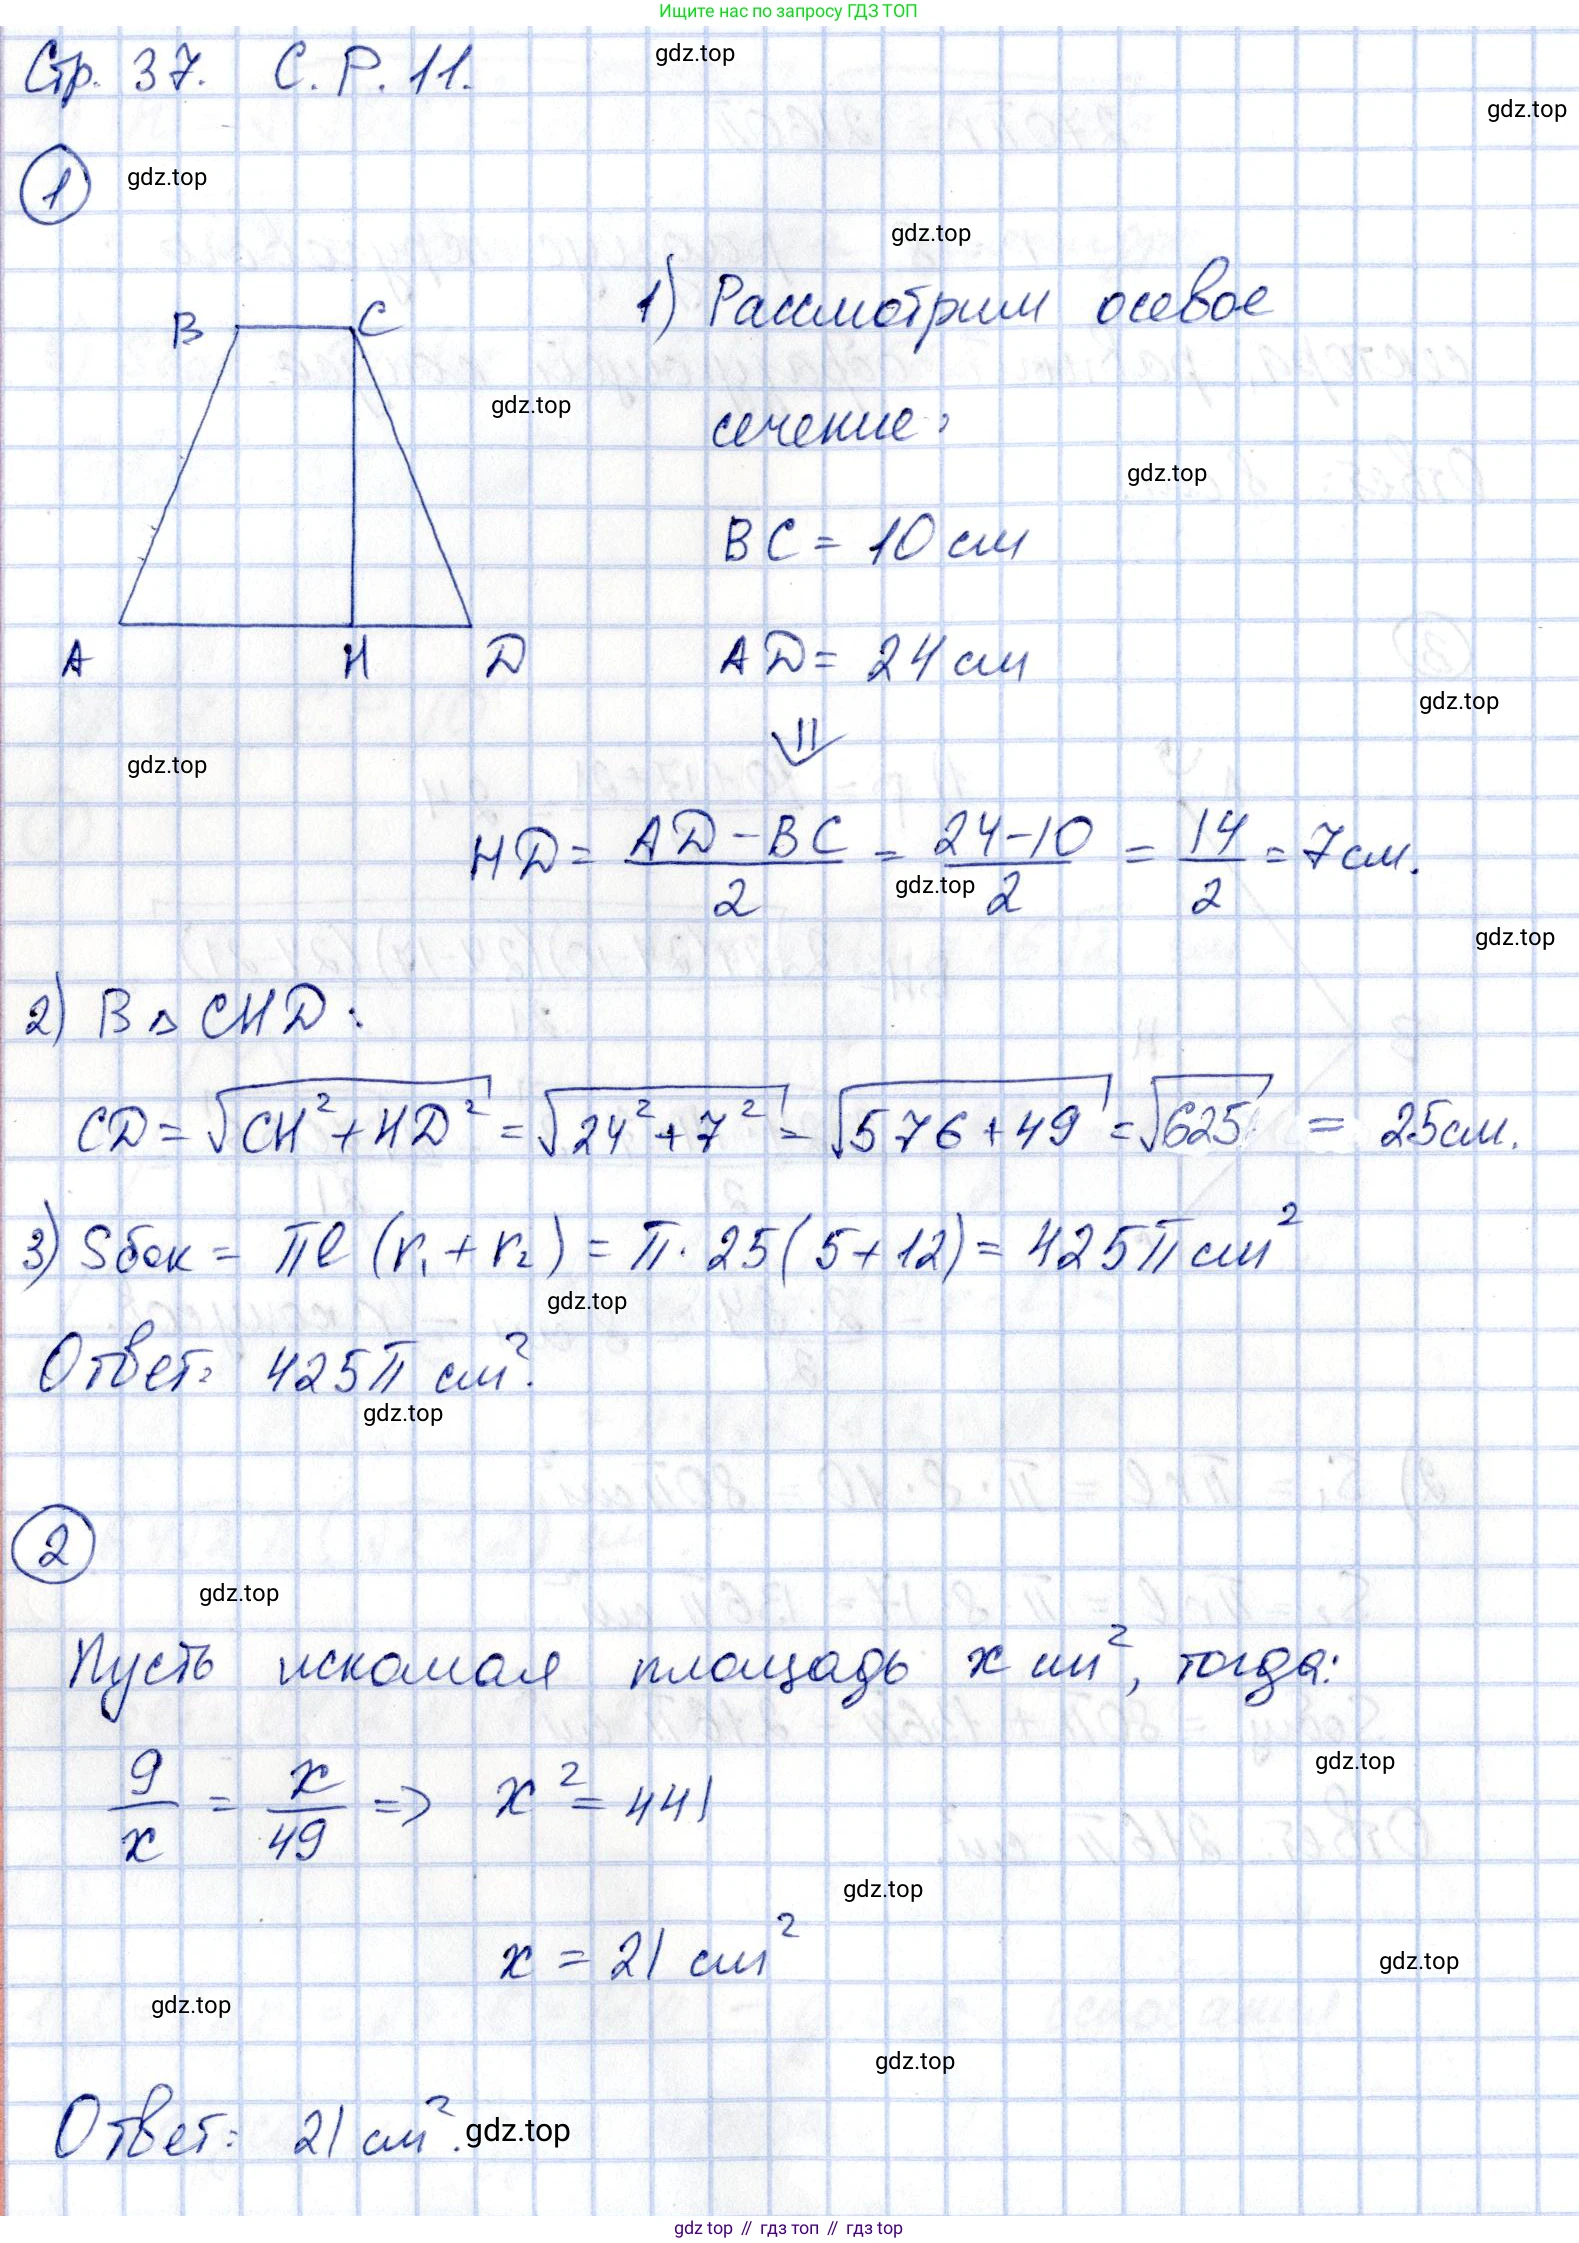 Ищите нас по запросу ГДЗ ТОП
Стр. 37. С. Р. 11.
gdz.top
gdz.top
1
gdz.top
gdz.top
B C
A H D
1) Рассмотрим осевое
gdz.top
сечение:
gdz.top
BC = 10 см
AD = 24 см
gdz.top
⇓
gdz.top
HD = (AD - BC)/2 = (24-10)/2 = 14/2 = 7 см.
gdz.top
gdz.top
2) В △ CHD:
CD = √(CH² + HD²) = √(24² + 7²) = √(576 + 49) = √625 = 25 см.
3) Sбок = πl (r₁ + r₂) = π · 25 (5 + 12) = 425π см²
gdz.top
Ответ: 425π см².
gdz.top
2
gdz.top
Пусть искомая площадь x см², тогда:
gdz.top
9/x = x/49 => x² = 441
gdz.top
x = 21 см²
gdz.top
gdz.top
gdz.top
Ответ: 21 см².
gdz.top
gdz top // гдз топ // гдз top